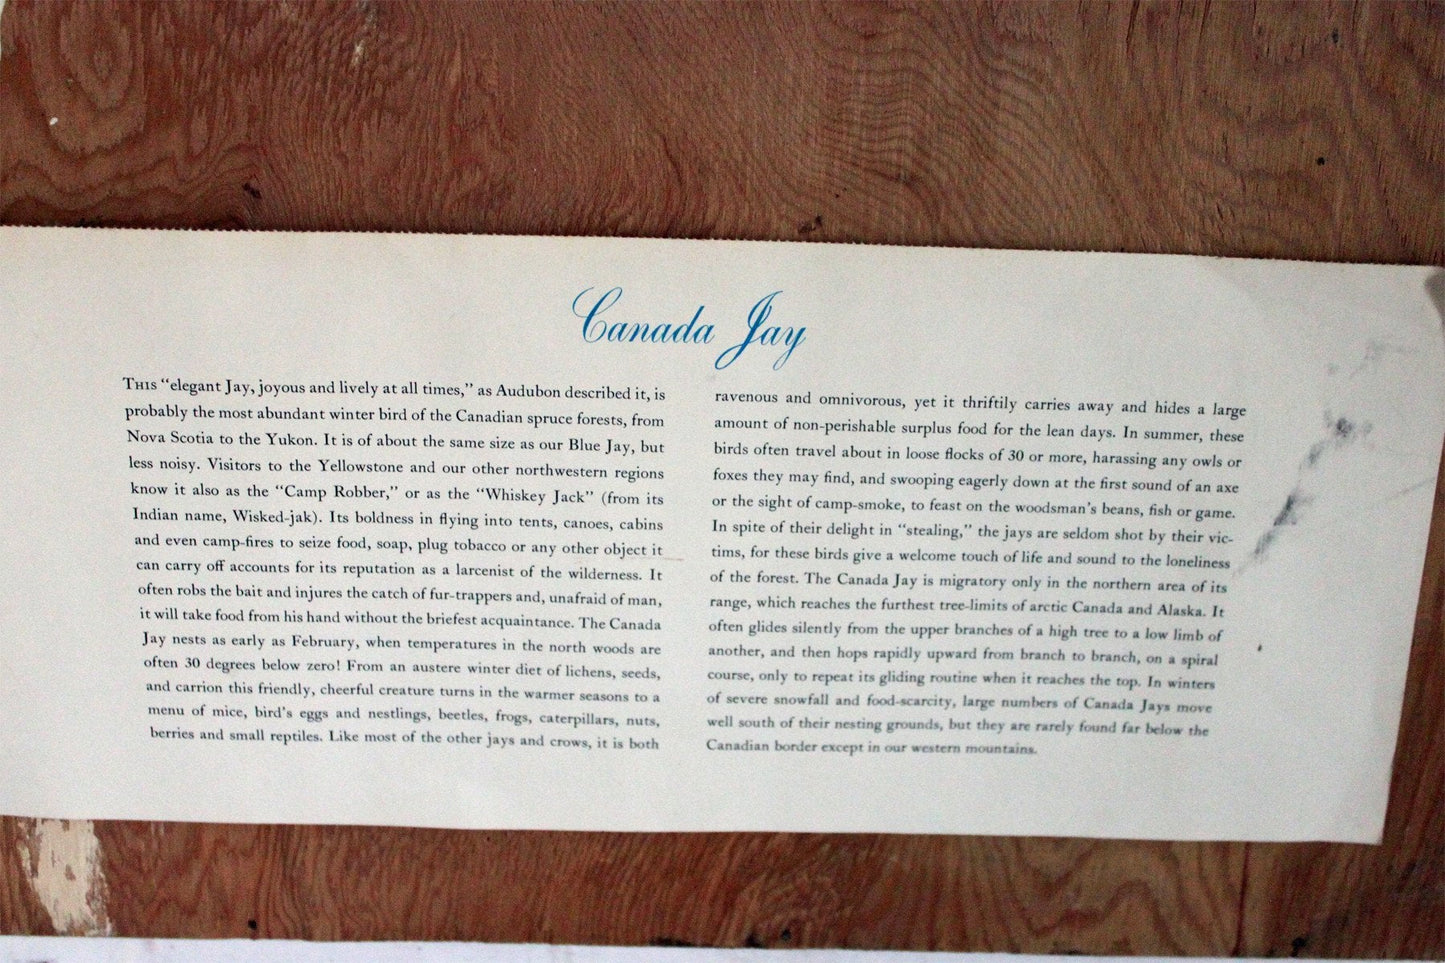 Canada Jay
THIS “elegant Jay, joyous and lively at all times,” as Audubon described it, is
probably the most abundant winter bird of the Canadian spruce forests, from
Nova Scotia to the Yukon. It is of about the same size as our Blue Jay, but
less noisy. Visitors to the Yellowstone and our other northwestern regions
know it also as the “Camp Robber,” or as the “Whiskey Jack” (from its
Indian name, Wisked-jak). Its boldness in flying into tents, canoes, cabins
and even camp-fires to seize food, soap, plug tobacco or any other object it
can carry off accounts for its reputation as a larcenist of the wilderness. It
often robs the bait and injures the catch of fur-trappers and, unafraid of man,
it will take food from his hand without the briefest acquaintance. The Canada
Jay nests as early as February, when temperatures in the north woods are
often 30 degrees below zero! From an austere winter diet of lichens, seeds,
and carrion this friendly, cheerful creature turns in the warmer seasons to a
menu of mice, bird’s eggs and nestlings, beetles, frogs, caterpillars, nuts,
berries and small reptiles. Like most of the other jays and crows, it is both
ravenous and omnivorous, yet it thriftily carries away and hides a large
amount of non-perishable surplus food for the lean days. In summer, these
birds often travel about in loose flocks of 30 or more, harassing any owls or
foxes they may find, and swooping eagerly down at the first sound of an axe
or the sight of camp-smoke, to feast on the woodsman’s beans, fish or game.
In spite of their delight in “stealing,” the jays are seldom shot by their vic-
tims, for these birds give a welcome touch of life and sound to the loneliness
of the forest. The Canada Jay is migratory only in the northern area of its
range, which reaches the furthest tree-limits of arctic Canada and Alaska. It
often glides silently from the upper branches of a high tree to a low limb of
another, and then hops rapidly upward from branch to branch, on a spiral
course, only to repeat its gliding routine when it reaches the top. In winters
of severe snowfall and food-scarcity, large numbers of Canada Jays move
well south of their nesting grounds, but they are rarely found far below the
Canadian border except in our western mountains.